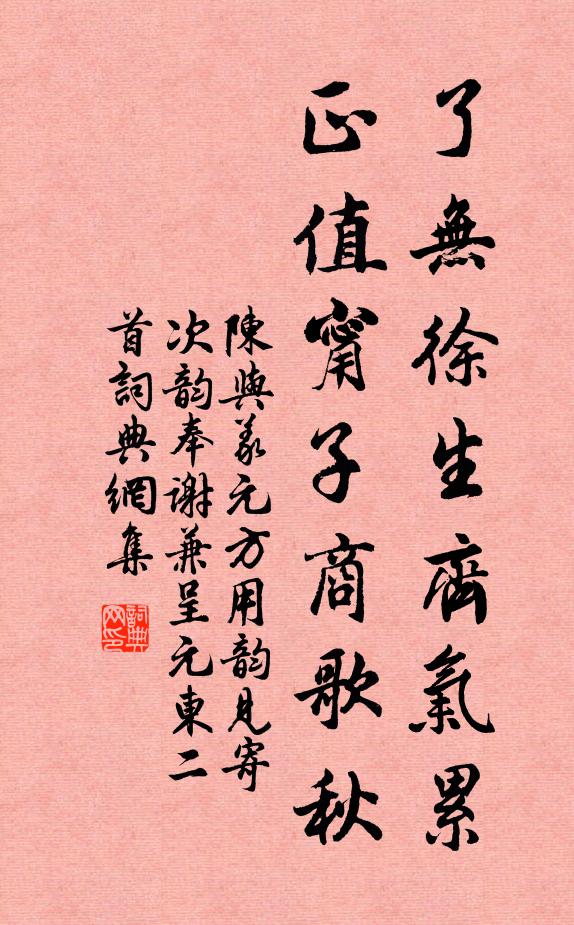 了無徐生齊氣累
正值甯子商歌秋
陳與義元方用韵見寄
次韵奉謝兼呈元東二
首詞典網集
詞典网印